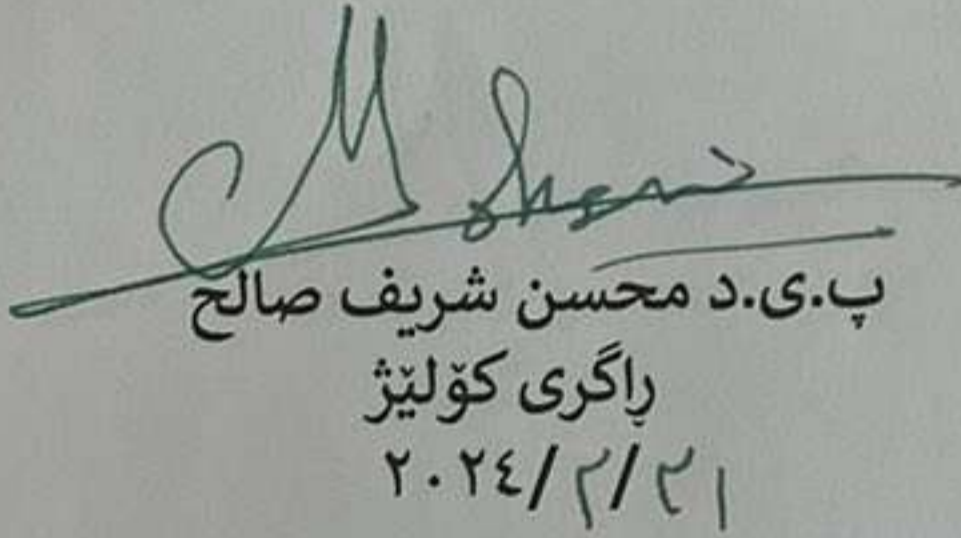 پ.ی.د محسن شریف صالح
ڕاگری کۆلێژ
٢٠٢٤/٢/٢١